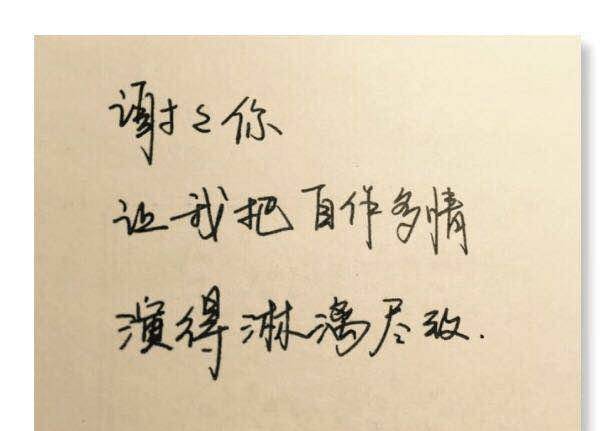 谢〻你
让我把自作多情
演得淋漓尽致.